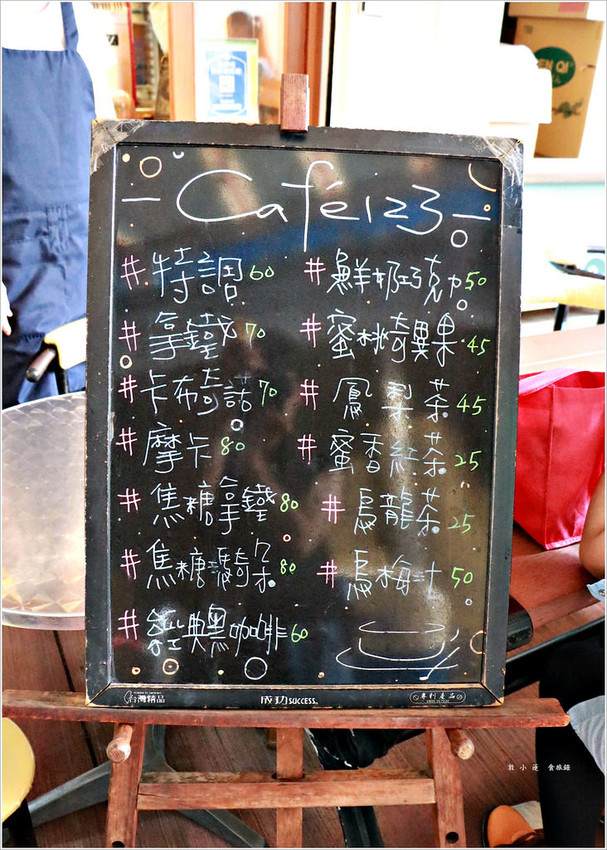 Café123
# 特調 60
# 拿鐵 70
# 卡布奇諾 70
# 摩卡 80
# 焦糖拿鐵 80
# 焦糖瑪奇朵 80
# 經典黑咖啡 60
# 鮮奶巧克力 50
# 蜜桃奇異果 45
# 鳳梨茶 45
# 蜜香紅茶 25
# 烏龍茶 25
# 烏梅汁 50
台灣精品
成功 SUCCESS
專利產品
敦小蓮 食旅錄